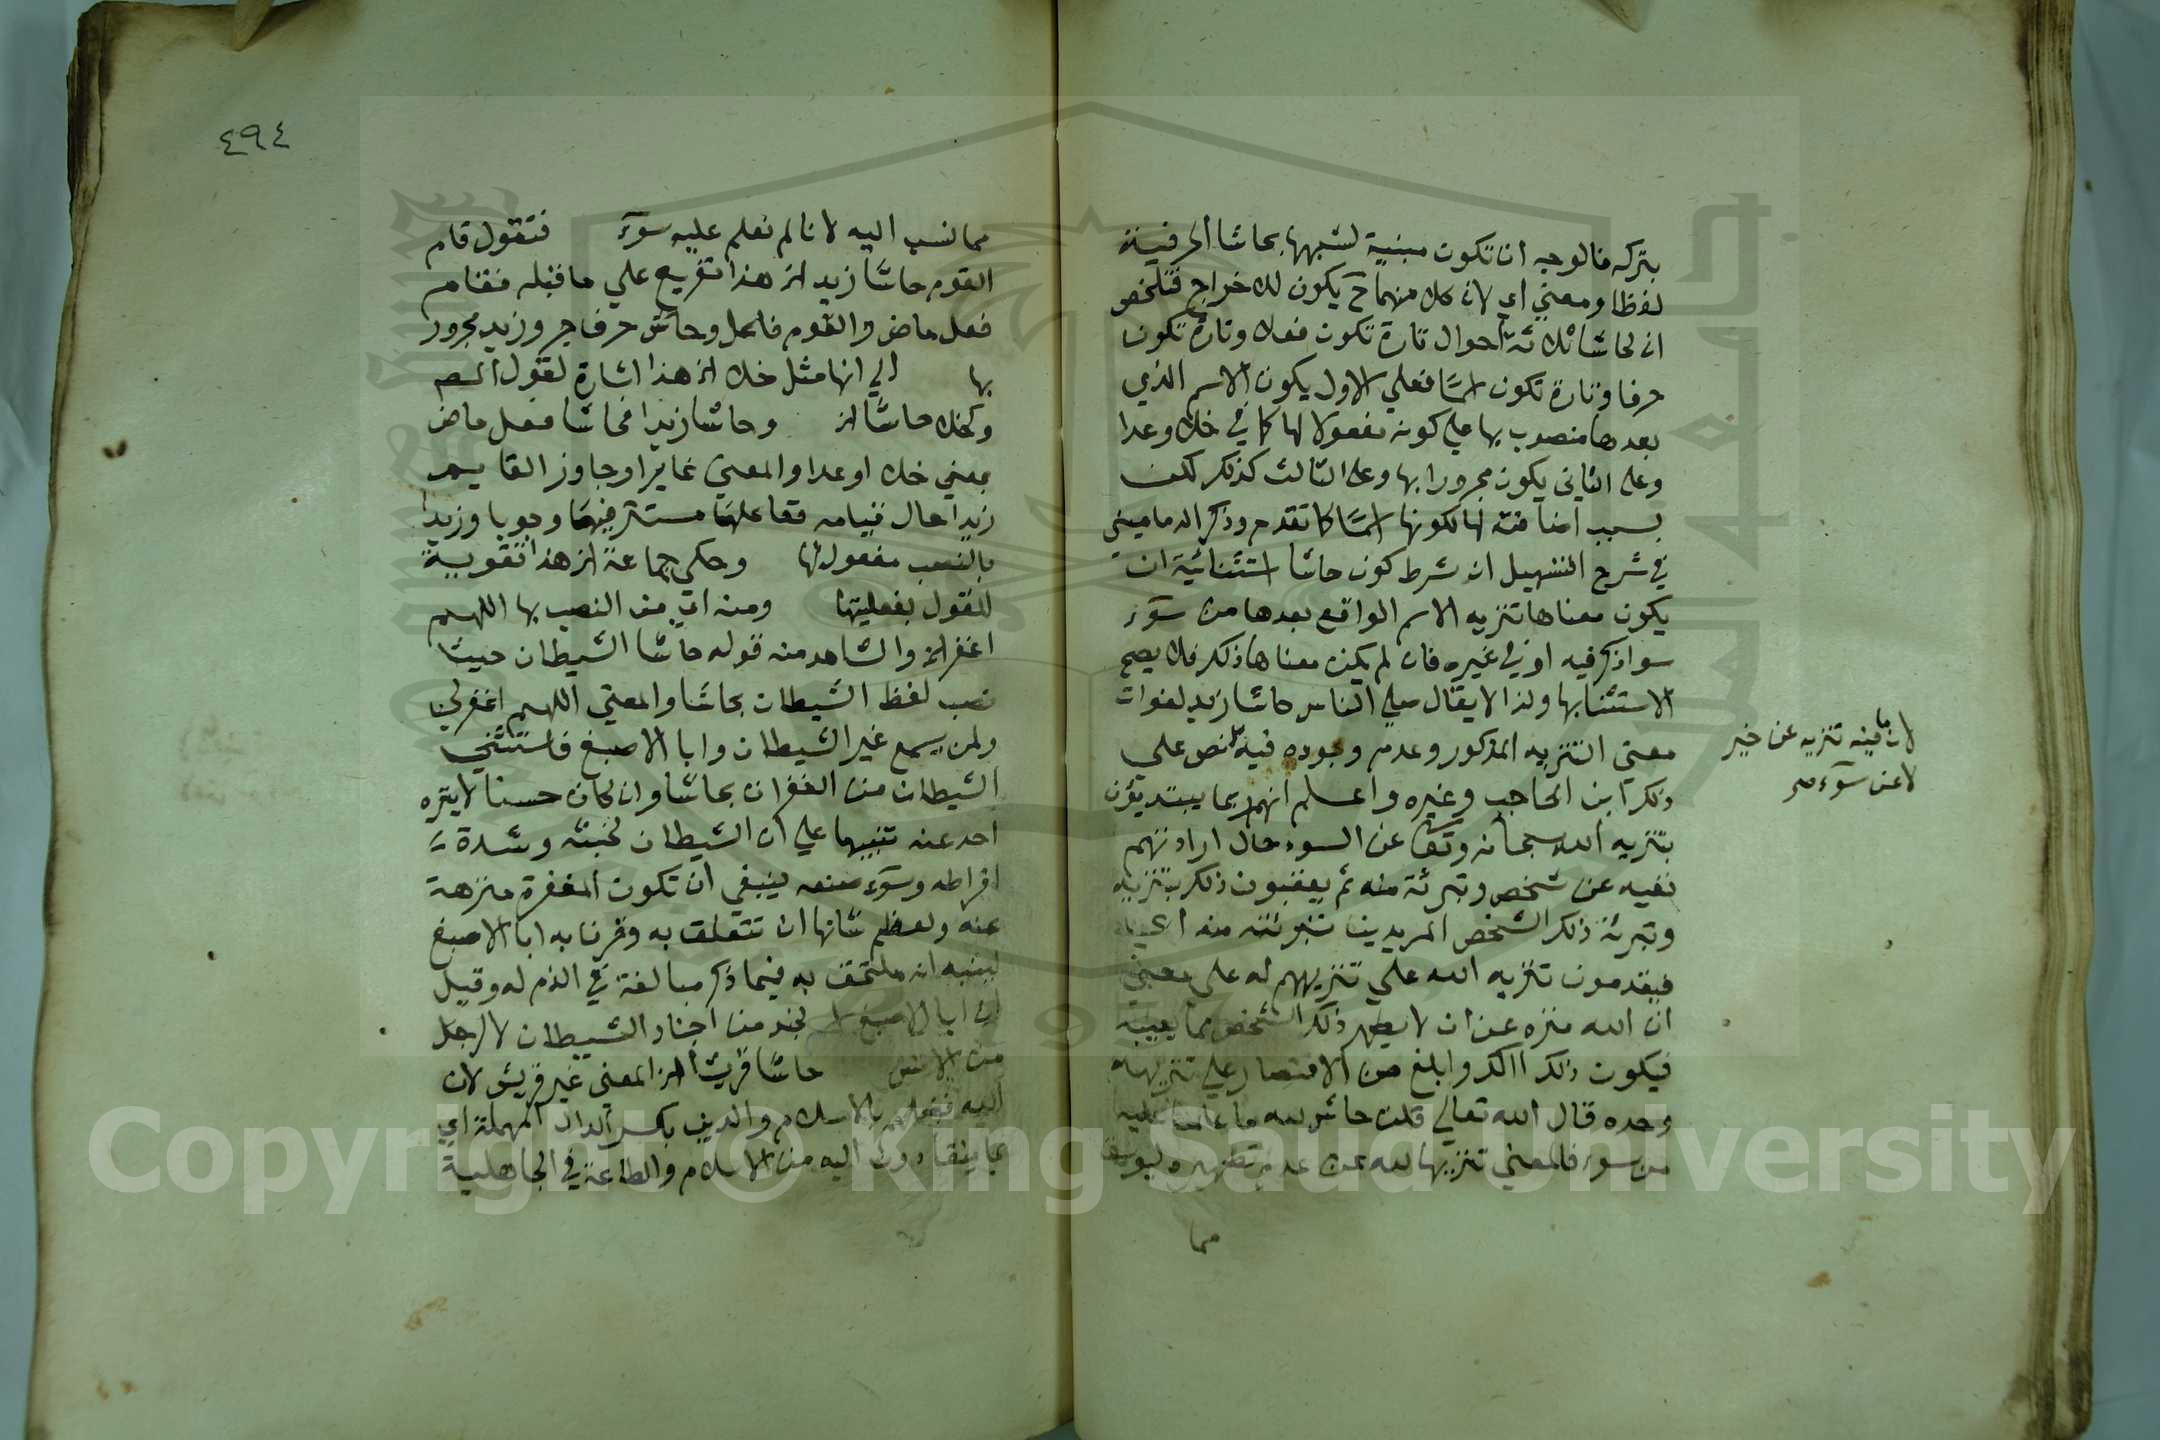 بتركه فالوجه ان تكون مبنية لشبهها بحاشا الحرفية
لفظا ومعني اي لان كلا منهما ح يكون للاخراج فتلخص
ان لحاشا ثلاثة احوال تارة تكون فعلا وتارة تكون
حرفا وتارة تكون اسما فعلي الاول يكون الاسم الذي
بعدها منصوب بها علي كونه مفعولا لها كما في خلا وعدا
وعلي الثاني يكون مجرورا بها وعلي الثالث كذلك لكن
بسبب اضافته لها لكونها اسما كما تقدم وذكر الدماميني
في شرح التسهيل ان شرط كون حاشا استثنائية ان
يكون معناها تنزيه الاسم الواقع بعدها من سوء
سوا ذكر فيه او في غيره فان لم يكن معناها ذلك فلا يصح
الاستثنا بها ولذا لا يقال صلي الناس حاشا زيد لفوات
معني التنزيه المذكور وعدم وجوده فيه نص علي
لان ما فيه تنزيه عن خير
لا عن سوء صح
ذلك ابن الحاجب وغيره واعلم انهم ربما يبتديؤن
بتنزيه الله سبحانه وتعا عن السوء حال ارادتهم
نفيه عن شخص وتبرئة منه ثم يعقبون ذلك بتنزيه
وتبرئة ذلك الشخص المريدين تبرئته منه اي
فيقدمون تنزيه الله علي تنزيههم له علي معني
ان الله منزه عن ان لا يطهر ذلك الشخص مما يعيبه
فيكون ذلك اكد وابلغ من الاقتصار علي تنزيهه
وحده قال الله تعالي قلن حاش لله ما علمنا عليه
من سوء فالمعني تنزيها لله عن عدم تطهيره ليوسف
مما
٤٩٤
مما نسب اليه لانا لم نعلم عليه سوء فتقول قام
القوم حاشا زيد الخ هذا تفريع علي ما قبله فقام
فعل ماض والقوم فاعل وحاش حرف جر وزيد مجرور
بها الي انها مثل خلا الخ هذا اشارة لقول المص
وكخلا حاشا الخ وحاشا زيدا فحاشا فعل ماض
بمعني خلا او عدا والمعني غايرا وجاوز القايم
زيدا حال قيامه ففاعلها مستتر فيها وجوبا وزيدا
بالنصب مفعول لها وحكي جماعة الخ هذا تقوية
للقول بفعليتها ومنه اي من النصب بها اللهم
اغفر الخ والشاهد منه قوله حاشا الشيطان حيث
نصب لفظ الشيطان بحاشا والمعني اللهم اغفر لي
ولمن يسمع غير الشيطان وابا الاصبغ فاستثني
الشيطان من الغفران بحاشا وان كان حسنا لا يتره
احد عنه تنبيها علي ان الشيطان لخبثه وشدة
افراطه وسوء صنعه ينبغي ان تكون المغفرة منزهة
عنه ولعظم شانها ان تتعلق به وقرنا به ابا الاصبغ
لينبه انه ملتحق به فيما ذكر مبالغة في الذم له وقيل
ان ابا الاصبغ اسم لجند من اجناد الشيطان لا لرجل
من الانس حاشا قريشا الخ المعني غير قريش لان
الله فضلهم بالاسلام والدين بكسر الدال المهملة اي
من الاسلام والطاعة في الجاهلية
Copyright © King Saud University